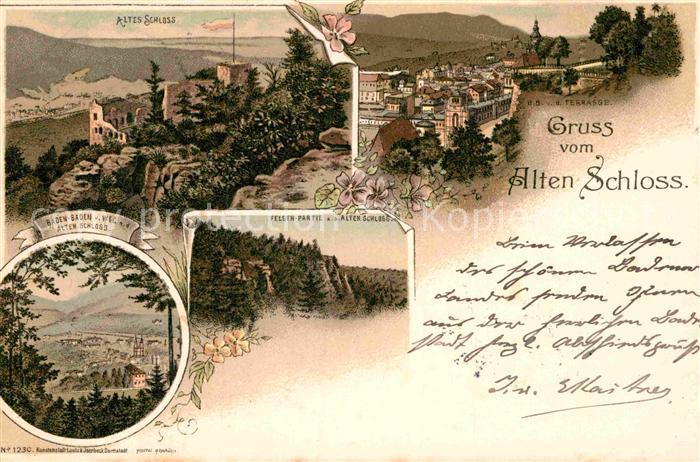 ALTES SCHLOSS
B.B. v. d. TERRASSE.
Gruss
vom
Alten Schloss.
BADEN-BADEN v. WEG z.
ALTEN SCHLOSS
FELSEN-PARTIE a. ALTEN SCHLOSS
Beim Verlassen
des schönen Badener
Landes senden Ihnen
aus der herrlichen Bäder
stadt Abschiedsgrüße
No 1230. Kunstanstalt Lautz & Jsenbeck, Darmstadt